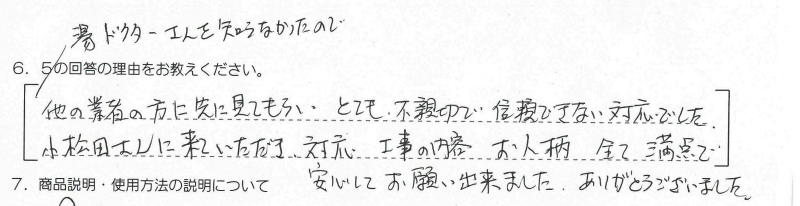 湯ドクターさんを知らなかったので
6. 5の回答の理由をお教えください。
他の業者の方に先に見てもらい とても 不親切で 信頼できない 対応でした.
小松田さんに来ていただき、対応 工事の内容 お人柄 全て 満点で
安心して お願い出来ました. ありがとうございました。
7. 商品説明・使用方法の説明について